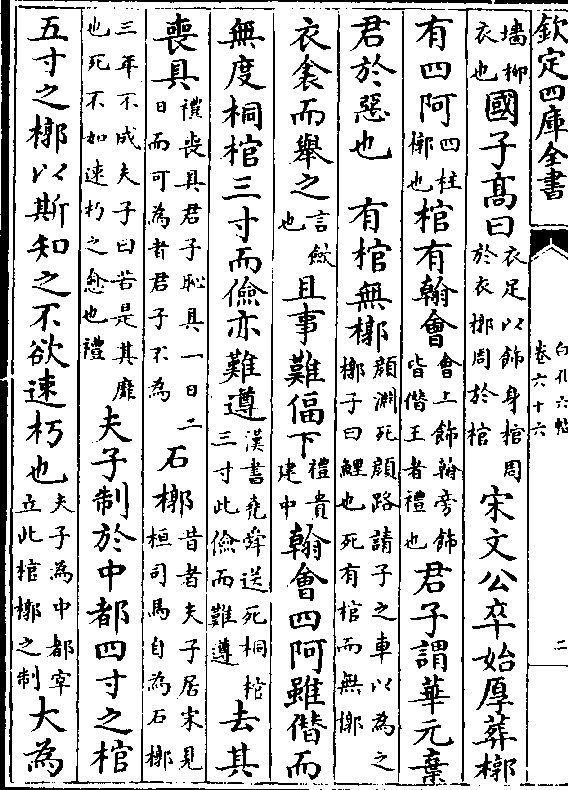 欽定四庫全書
白孔六帖
卷六十六
二
墻柳衣也國子髙曰衣足以飾身棺周於衣槨周於棺宋文公卒始厚葬槨
有四阿四柱槨也棺有翰會會上飾翰旁飾皆僭王者禮也君子謂華元棄
君於惡也 有棺無槨顔淵死顔路請子之車以為之槨子曰鯉也死有棺而無槨
衣衾而舉之言歛也且事難偪下禮貴建中翰會四阿雖僭而
無度桐棺三寸而儉亦難遵漢書堯舜送死桐棺三寸此儉而難遵去其
喪具禮喪具君子恥具一日二日而可為者君子不為石槨昔者夫子居宋見桓司馬自為石槨
三年不成夫子曰若是其靡也死不如速朽之愈也禮夫子制於中都四寸之棺
五寸之槨以斯知之不欲速朽也夫子為中都宰立此棺槨之制大為